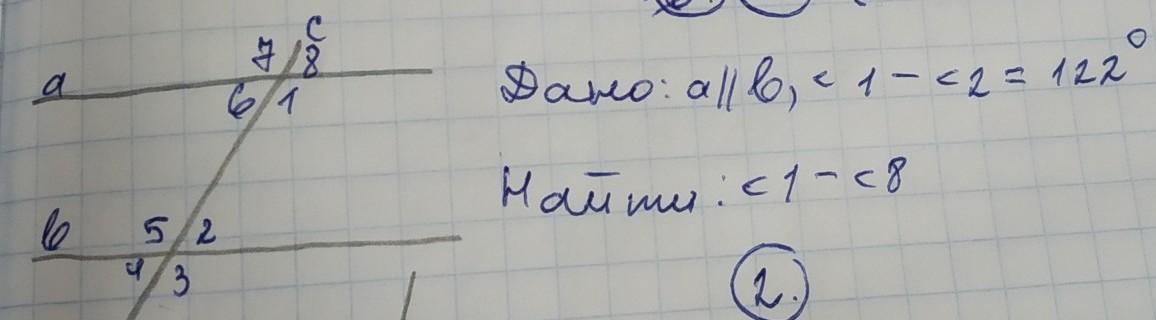 c
7 8
a
6 1
Дано: a || b, < 1 - < 2 = 122°
Найти: < 1 - < 8
b 5 2
4 3
2.